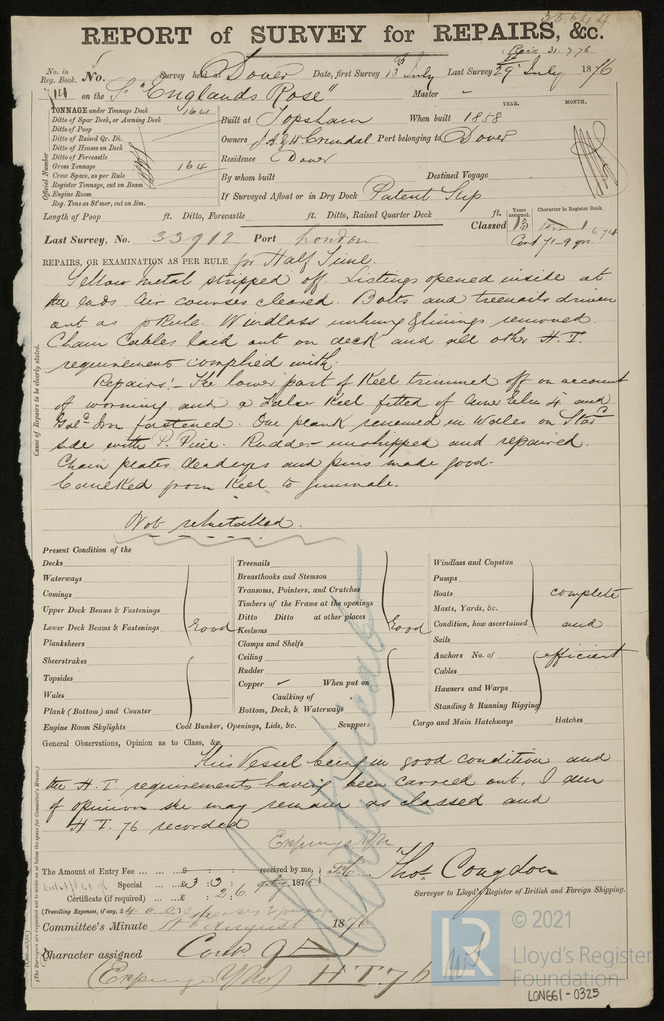 REPORT of SURVEY for REPAIRS, &c.
No. in Reg. Book.
No. Survey held at Dover Date, first Survey 13th July Last Survey 29th July 1876
714 on the Sr "Englands Rose" Master -
TONNAGE under Tonnage Deck 164
Ditto of Spar Deck, or Awning Deck
Ditto of Poop
Ditto of Raised Qr. Dk.
Ditto of Houses on Deck
Ditto of Forecastle
Gross Tonnage 164
Crew Space, as per Rule
Register Tonnage, cut on Beam
Engine Room
Reg. Tons as St'mer, cut on Bm.
Official Number
YEAR. MONTH.
Built at Topsham When built 1858
Owners J A & H Crundal Port belonging to Dover
Residence Dover
By whom built Destined Voyage
If Surveyed Afloat or in Dry Dock Patent Slip
Length of Poop ft. Ditto, Forecastle ft. Ditto, Raised Quarter Deck ft.
Years assigned. Character in Register Book.
Classed 13
Cont 71-9 yrs
Last Survey, No. 33912 Port London
REPAIRS, OR EXAMINATION AS PER RULE for Half Time.
Yellow metal stripped off. Listings opened inside at
the ends. Air courses cleared. Bolts and treenails driven
out as p Rule. Windlass unhung & linings removed
Chain Cables laid out on deck and all other H.T.
requirements complied with.
Repairs:- The lower part of Keel trimmed off on account
of worming and a False Keel fitted of Amer Elm 4 and
Galv Iron fastened. One plank renewed in Wales on Starb
side with P. Pine. Rudder unshipped and repaired.
Chain plates deadeyes and pins made good.
Caulked from Keel to gunwale.
Not remetalled.
Cause of Repairs to be clearly stated.
Present Condition of the
Decks
Waterways
Comings
Upper Deck Beams & Fastenings
Lower Deck Beams & Fastenings
Planksheers
Sheerstrakes
Topsides
Wales
Plank (Bottom) and Counter
Engine Room Skylights
Good
Treenails
Breasthooks and Stemson
Transoms, Pointers, and Crutches
Timbers of the Frame at the openings
Ditto Ditto at other places
Keelsons
Clamps and Shelfs
Ceiling
Rudder
Copper ✓ When put on
Caulking of
Bottom, Deck, & Waterways
Coal Bunker, Openings, Lids, &c. Scuppers
Good
Windlass and Capstan
Pumps
Boats
Masts, Yards, &c.
Condition, how ascertained
Sails
Anchors No. of
Cables
Hawsers and Warps
Standing & Running Rigging
Cargo and Main Hatchways Hatches
complete
and
efficient
General Observations, Opinion as to Class, &c.
This Vessel being in good condition and
the H.T requirements having been carried out, I am
of opinion she may remain as classed and
H T. 76 recorded
The Amount of Entry Fee £ received by me,
Special £3 : 3 : 187
Certificate (if required) £ : 2 : 6.
(Travelling Expenses, if any, £
Thos. Congdon
Surveyor to Lloyd's Register of British and Foreign Shipping.
Committee's Minute 1st August 1876
Character assigned Cont 9
H T 76
© 2021
LR
Lloyd's Register
Foundation
LON661-0325